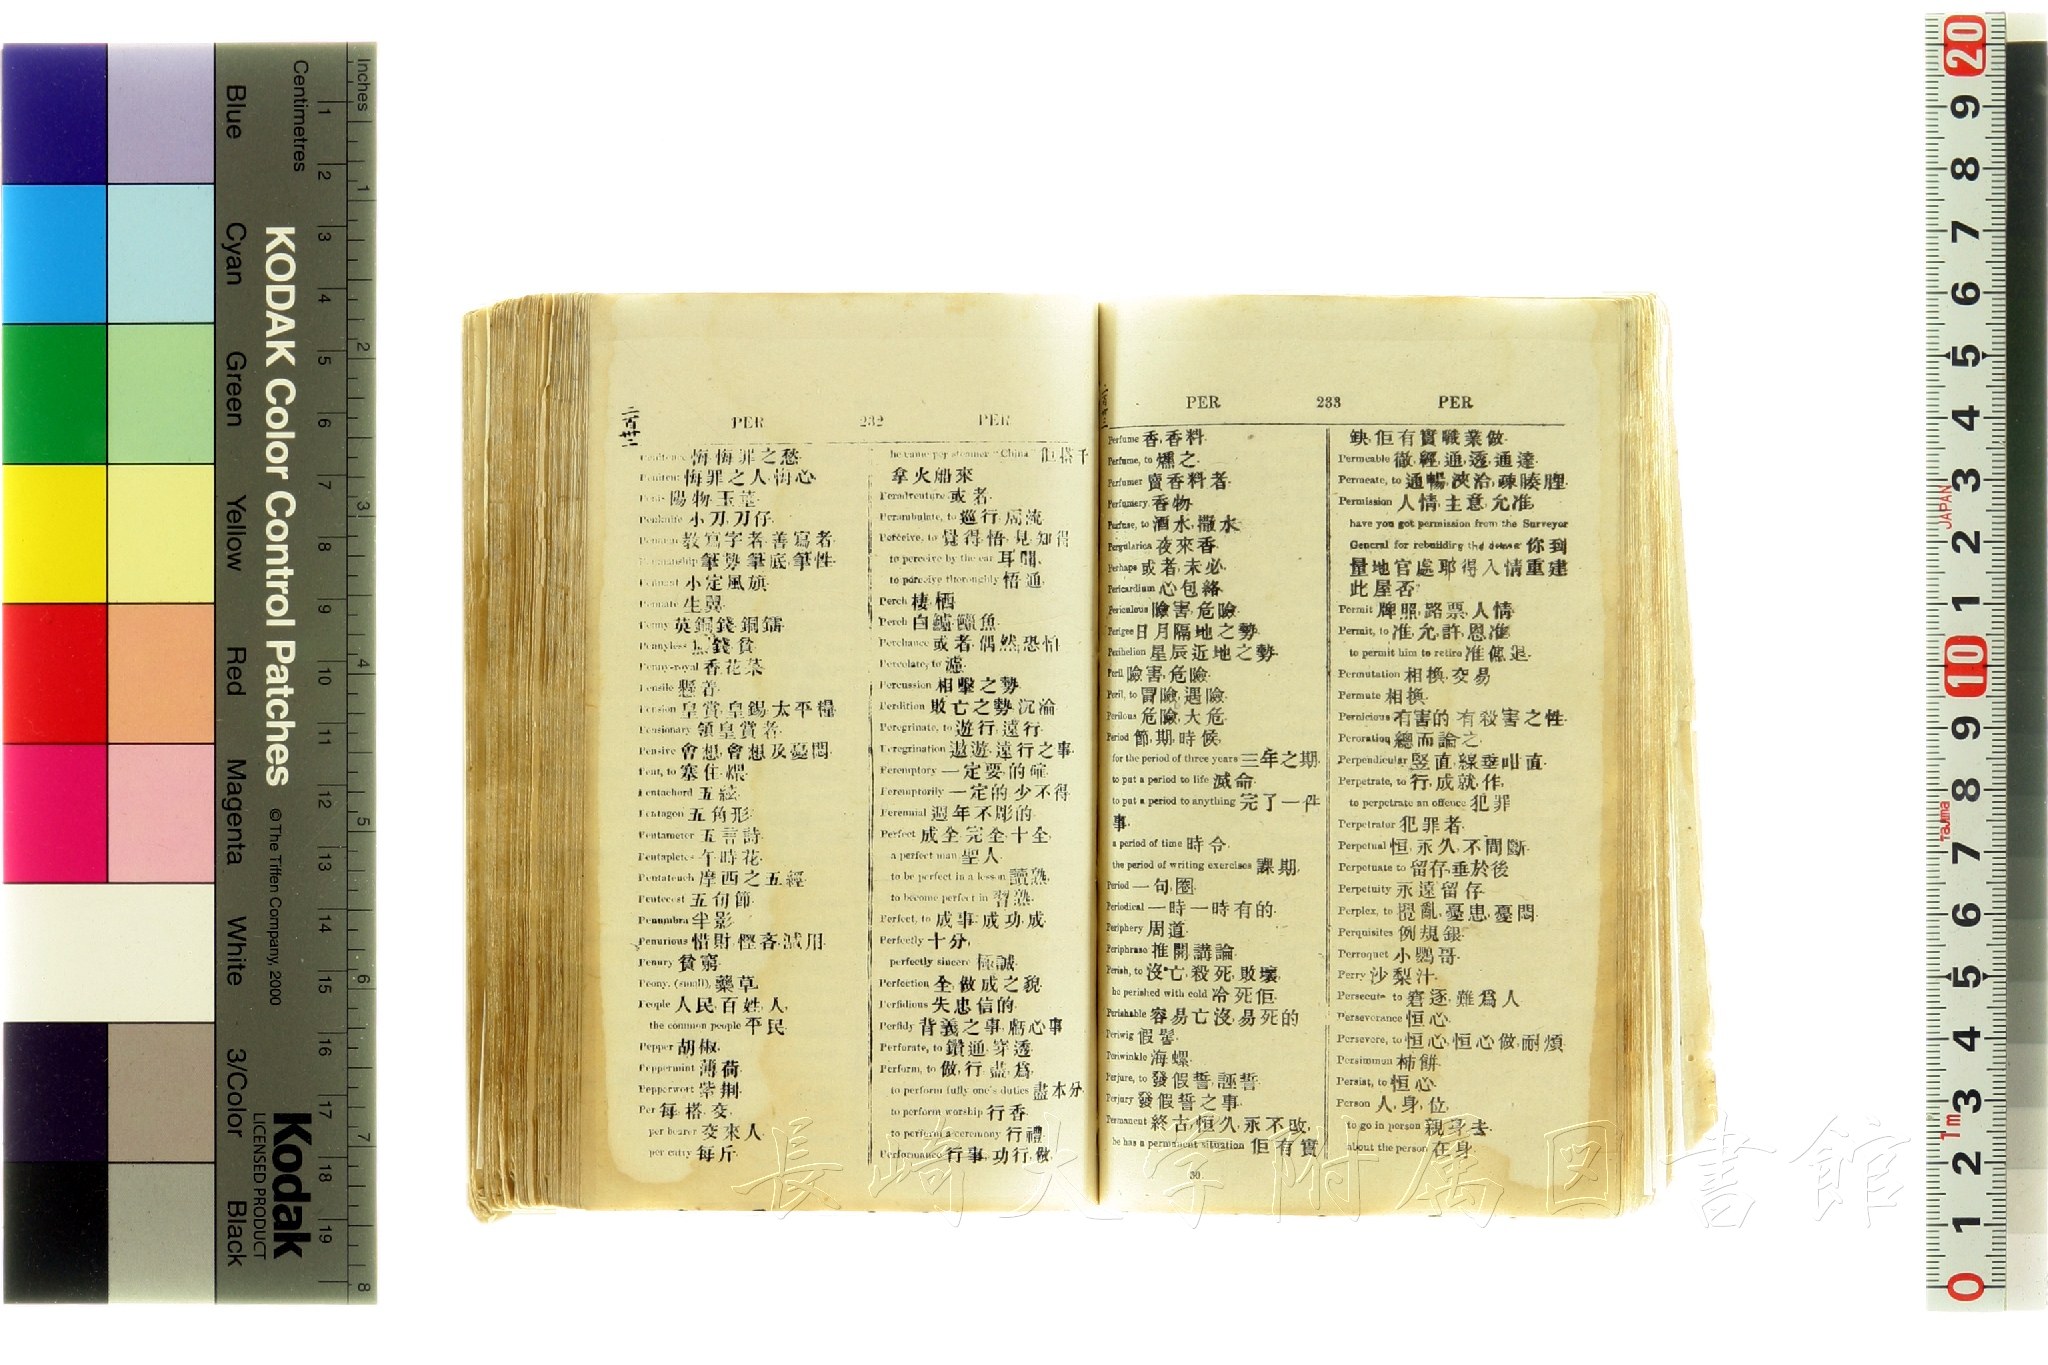 Inches
Centimetres
KODAK Color Control Patches © The Tiffen Company, 2000
Kodak
LICENSED PRODUCT
Blue
Cyan
Green
Yellow
Red
Magenta
White
3/Color
Black
PER 232 PER
悔悔罪之愁
Penitent 悔罪之人,悔心
Penis 陽物,玉莖
Penknife 小刀,刀仔
教寫字者,善寫者
筆勢,筆底,筆性
Pennant 小定風旗
Pennate 生翼
Penny 英銅錢,銅鐳
Pennyless 錢,貧
Penny-royal 香花菜
Pensile 懸着
Pension 皇賞,皇錫,太平糧
Pensionary 領皇賞者
Pensive 會想,會想及憂悶
Pent, to 塞住
Pentachord 五絃
Pentagon 五角形
Pentameter 五言詩
Pentapletes 午時花
Pentateuch 摩西之五經
Pentecost 五旬節
Penumbra 半影
Penurious 惜財,慳吝,減用
Penury 貧窮
Peony, (small), 藥草
People 人民,百姓,人
the common people 平民
Pepper 胡椒
Peppermint 薄荷
Pepperwort 紫荆
Per 每,搭,交
per bearer 交來人
per catty 每斤
he came per steamer "China 佢搭千
拿火船來
Peradventure 或者
Perambulate, to 巡行,周流
Perceive, to 覺得,悟,見,知得
to perceive by the ear 耳聞
to perceive thoroughly 悟通
Perch 棲,栖
Perch 白鱸,魚
Perchance 或者,偶然,恐怕
Percolate, to 濾
Percussion 相擊之勢
Perdition 敗亡之勢,沉淪
Peregrinate, to 遊行,遠行
Peregrination 遨遊,遠行之事
Peremptory 一定要,的確
Peremptorily 一定的,少不得
Perennial 週年不彫的
Perfect 成全,完全,十全
a perfect man 聖人
to be perfect in a lesson 讀熟
to become perfect in 習熟
Perfect, to 成事,成功,成
Perfectly 十分
perfectly sincere 極誠
Perfection 全,做成之貌
Perfidious 失忠信的
Perfidy 背義之事,虧心事
Perforate, to 鑽通,穿透
Perform, to 做,行,盡,為
to perform fully one's duties 盡本分
to perform worship 行香
to perform a ceremony 行禮
Performance 行事,功行,做
PER 233 PER
Perfume 香,香料
Perfume, to 燻之
Perfumer 賣香料者
Perfumery 香物
Perfuse, to 洒水,撒水
Pergularica 夜來香
Perhaps 或者,未必
Pericardium 心包絡
Periculous 險害,危險
Perigee 日月隔地之勢
Perihelion 星辰近地之勢
Peril 險害,危險
Peril, to 冒險,遇險
Perilous 危險,大危
Period 節,期,時候
for the period of three years 三年之期
to put a period to life 滅命
to put a period to anything 完了一件
事
a period of time 時令
the period of writing exercises 課期
Period 一句,圈
Periodical 一時一時有的
Periphery 周道
Periphrase 推開講論
Perish, to 沒,亡,殺死,敗壞
he perished with cold 冷死佢
Perishable 容易亡沒,易死的
Periwig 假髻
Periwinkle 海螺
Perjure, to 發假誓,誣誓
Perjury 發假誓之事
Permanent 終古,恒久,永不改
he has a permanent situation 佢有實
30
缺,佢有實職業做
Permeable 徹,經,通,透,通達
Permeate, to 通暢,浹洽,疎腠腥
Permission 人情,主意,允准
have you got permission from the Surveyor
General for rebuilding the 你到
量地官處耶得人情重建
此屋否
Permit 牌照,路票,人情
Permit, to 准,允,許,恩准
to permit him to retire 准佢退
Permutation 相換,交易
Permute 相換
Pernicious 有害的,有殺害之性
Peroration 總而論之
Perpendicular 竪直,線垂咁直
Perpetrate, to 行,成就,作
to perpetrate an offence 犯罪
Perpetrator 犯罪者
Perpetual 恒,永久,不間斷
Perpetuate to 留存,垂於後
Perpetuity 永遠留存
Perplex, to 攪亂,憂患,憂悶
Perquisites 例規銀
Perroquet 小鸚哥
Perry 沙梨汁
Persecute to 窘逐,難為人
Perseverance 恒心
Persevere, to 恒心,恒心做,耐煩
Persimmun 柿餅
Persist, to 恒心
Person 人,身,位
to go in person 親身去
about the person 在身
長崎大学附属図書館
JAPAN
Tajima
1m